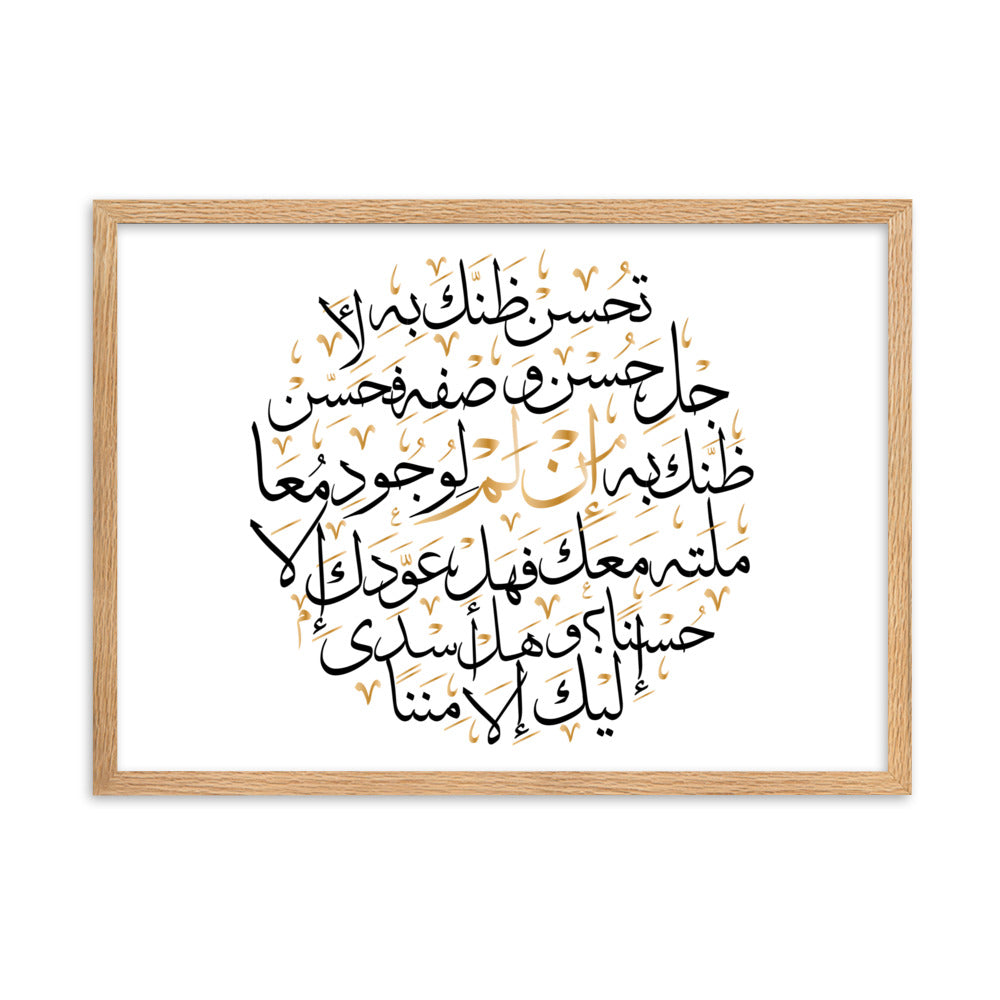 تُحسن ظَنَّكَ به لأ
جْل حُسْن وَصْفه فَحَسّن
ظَنَّكَ به إنْ لَمْ لِوُجُود مُعَا
ملَته مَعَكَ فَهَلْ عَوَّدَكَ إلا
حُسْنًا؟ وَهَلْ أسْدَى
إلَيْكَ إلا مَننًا